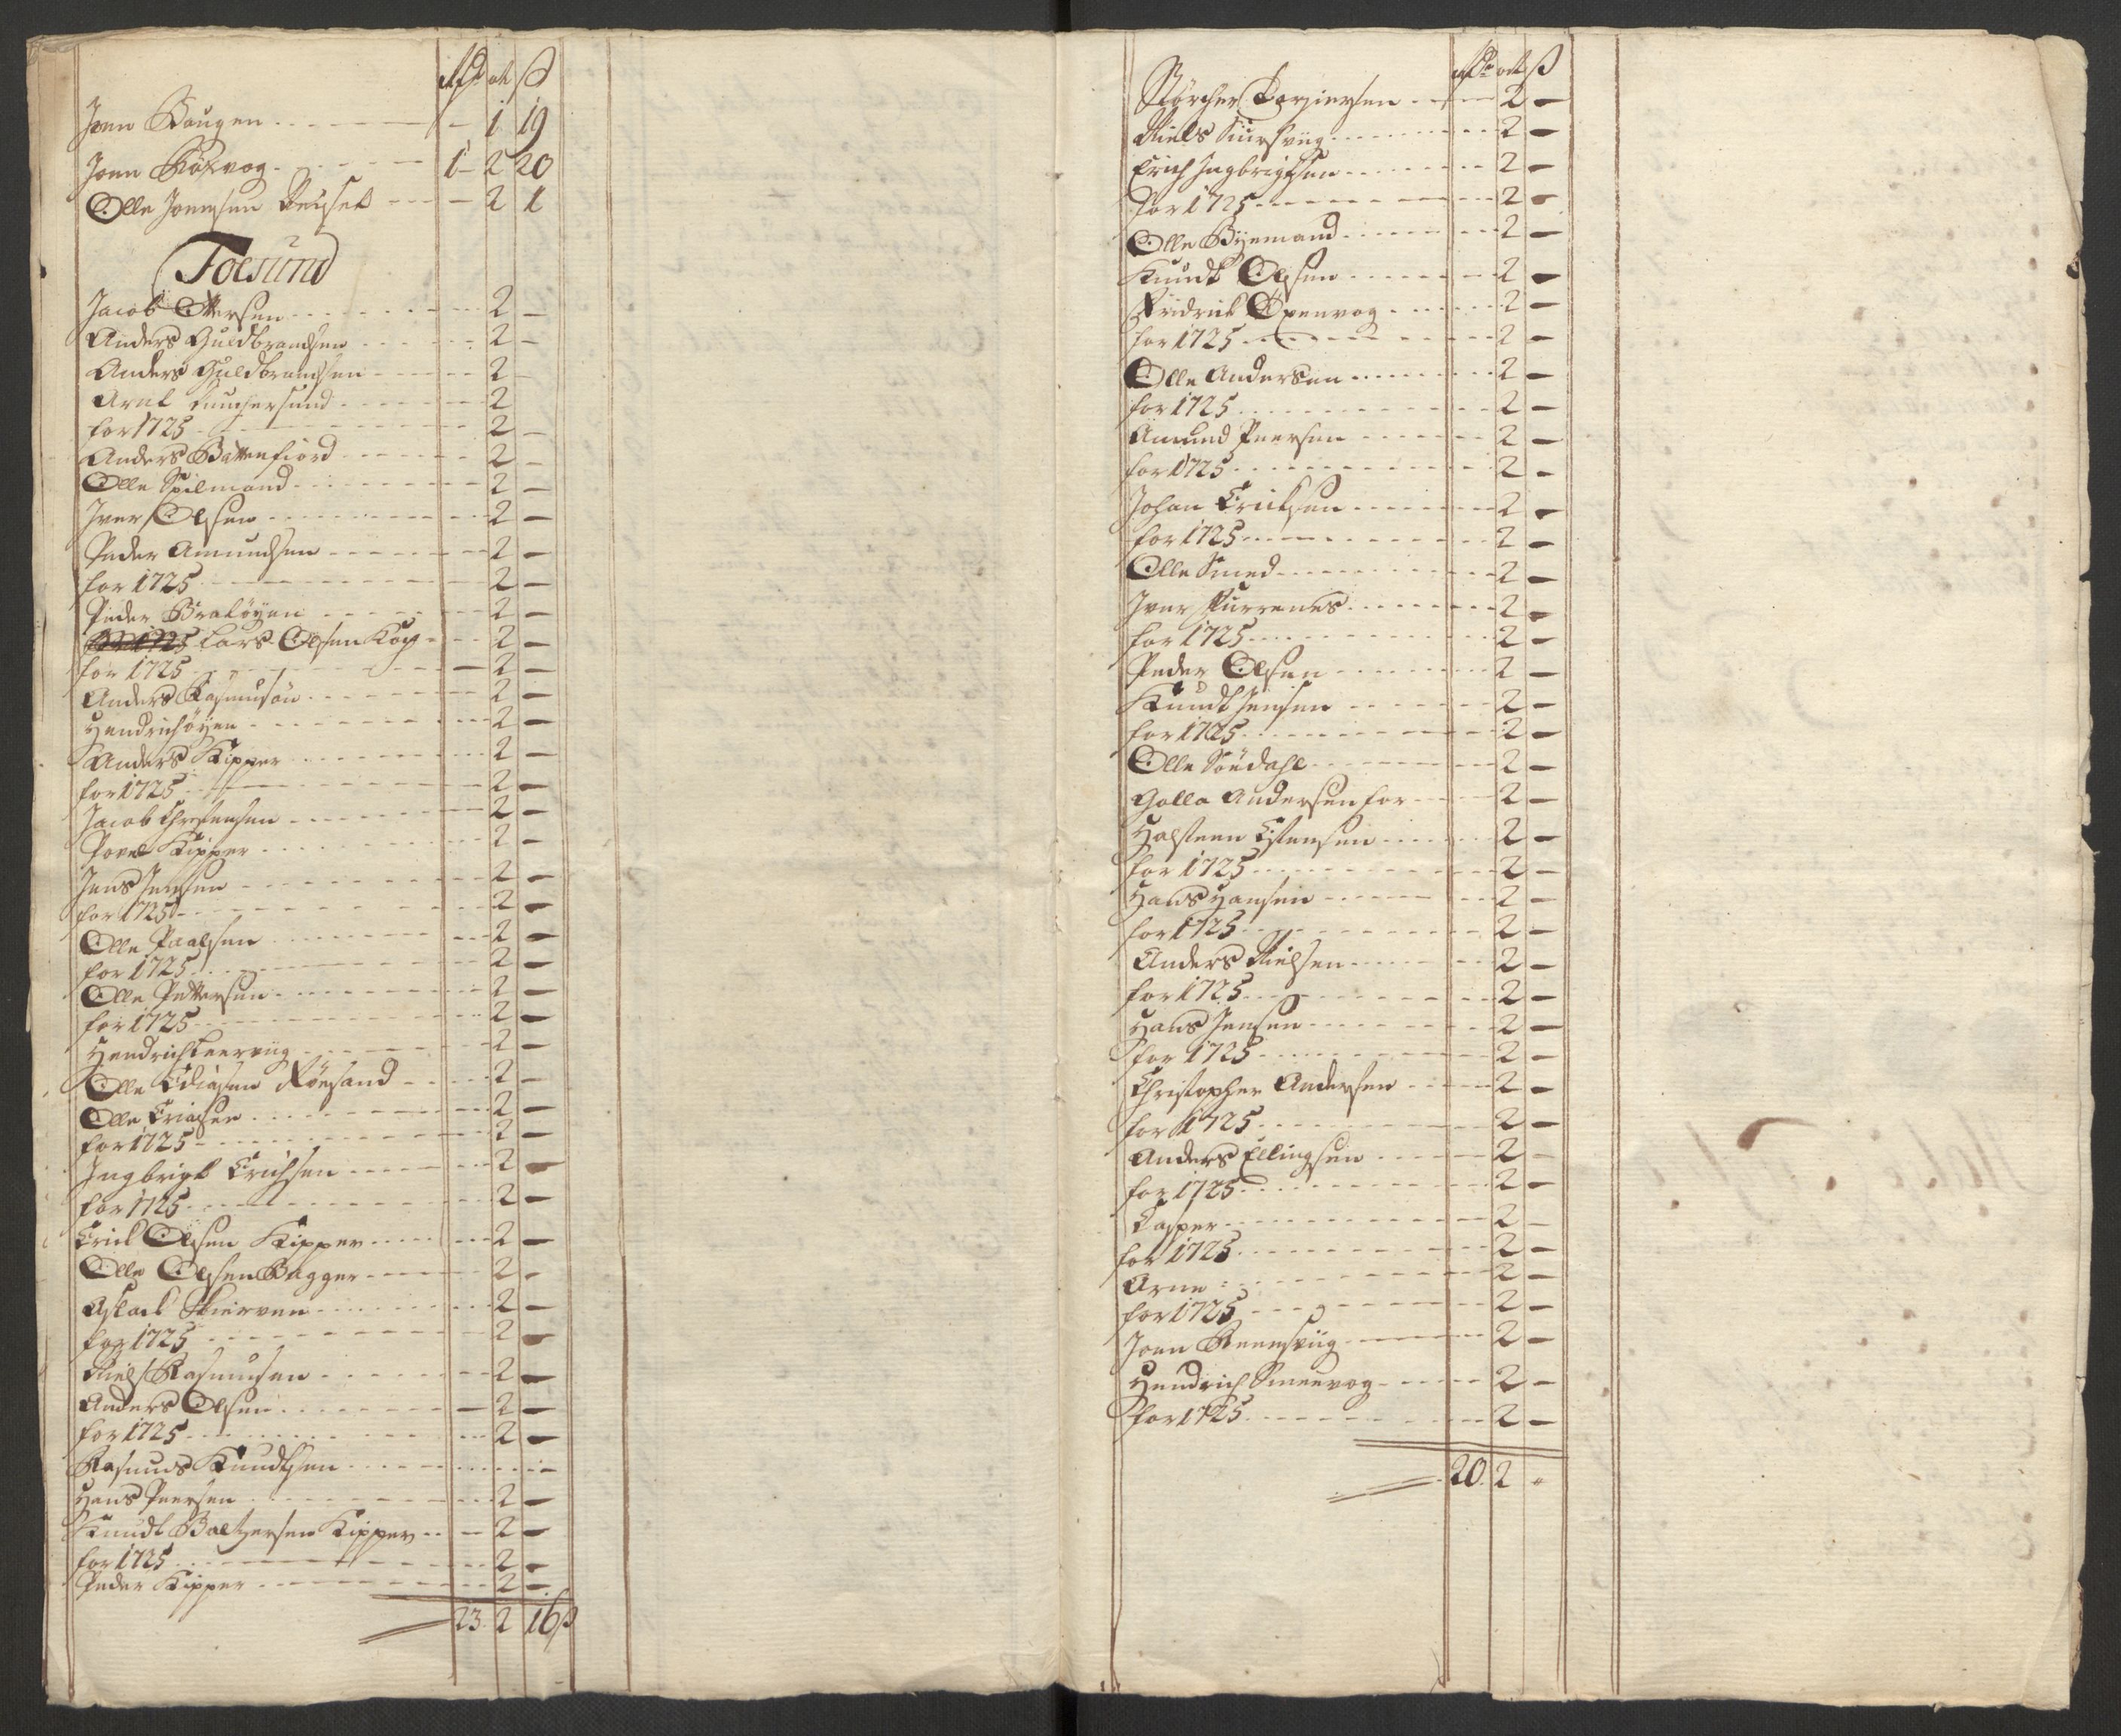 Rdr ort ß
Joen Baugen - 1 19
Joen 1 - 2 20
Olle Joensen - 2 1
Foesund
Jacob Ottersen 2 -
Anders Guldbrandsen 2 -
Anders Guldbrandsen 2
2
for 1725 2 -
Anders Battenfiord 2 -
Olle Spilmand 2 -
Iver Olsen 2 -
Peder Amundsen 2 -
for 1725 2 -
Peder Bratøyen 2 -
Lars Olsen 2 -
for 1725 2 -
Anders 2 -
Hendrich øyen 2 -
Anders Kipper 2 -
for 1725 2 -
Jacob Christensen 2 -
Povel Kipper 2 -
Jens Jensen 2 -
for 1725 2 -
Olle Paalsen 2 -
for 1725 2 -
Olle Pettersen 2 -
for 1725 2 -
Hendrich Leerviig 2 -
Olle Eliasen Røesand 2 -
Olle Ericsen 2 -
for 1725 2 -
Ingbrigt Erichsen 2 -
for 1725 2 -
Erick Olsen Kipper 2 -
Olle Olsen Bagger 2 -
Aslack Skierven 2 -
for 1725 2 -
Niels Rasmusen 2 -
Anders Olsen 2 -
for 1725 2 -
Rasmus Knudtsen
Hans Peersen 2 -
Knudt Baltzersen Kipper 2 -
for 1725 2 -
Peder Kipper 2 -
23 2 16 ß
Rdr ort ß
Størcher Torgiersen 2 -
Niels 2 -
Erich Ingbrigtsen 2 -
for 1725 2 -
Olle Byemand 2 -
Knudt Olsen 2 -
Fridrick Øxenvog 2 -
for 1725 2 -
Olle Andersen 2 -
for 1725 2 -
Amund Peersen 2 -
for 1725 2 -
Johan Ericksen 2 -
for 1725 2 -
Olle Smed 2 -
Iver Furrenes 2 -
for 1725 2 -
Peder Olsen 2 -
Knudt Jensen 2 -
for 1725 2 -
Olle Søndahl 2 -
Andersen for 2 -
Halsteen Estensen 2 -
for 1725 2 -
Hans Hansen 2 -
for 1725 2 -
Anders Nielsen 2 -
for 1725 2 -
Hans Jensen 2 -
for 1725 2 -
Christopher Andersen 2 -
for 1725 2 -
Anders Ellingsen 2 -
for 1725 2 -
Casper 2 -
for 1725 2 -
Arne 2 -
for 1725 2 -
Joen Reensviig 2 -
Hendrich Smeevog 2 -
for 1725 2 -
20 2 -